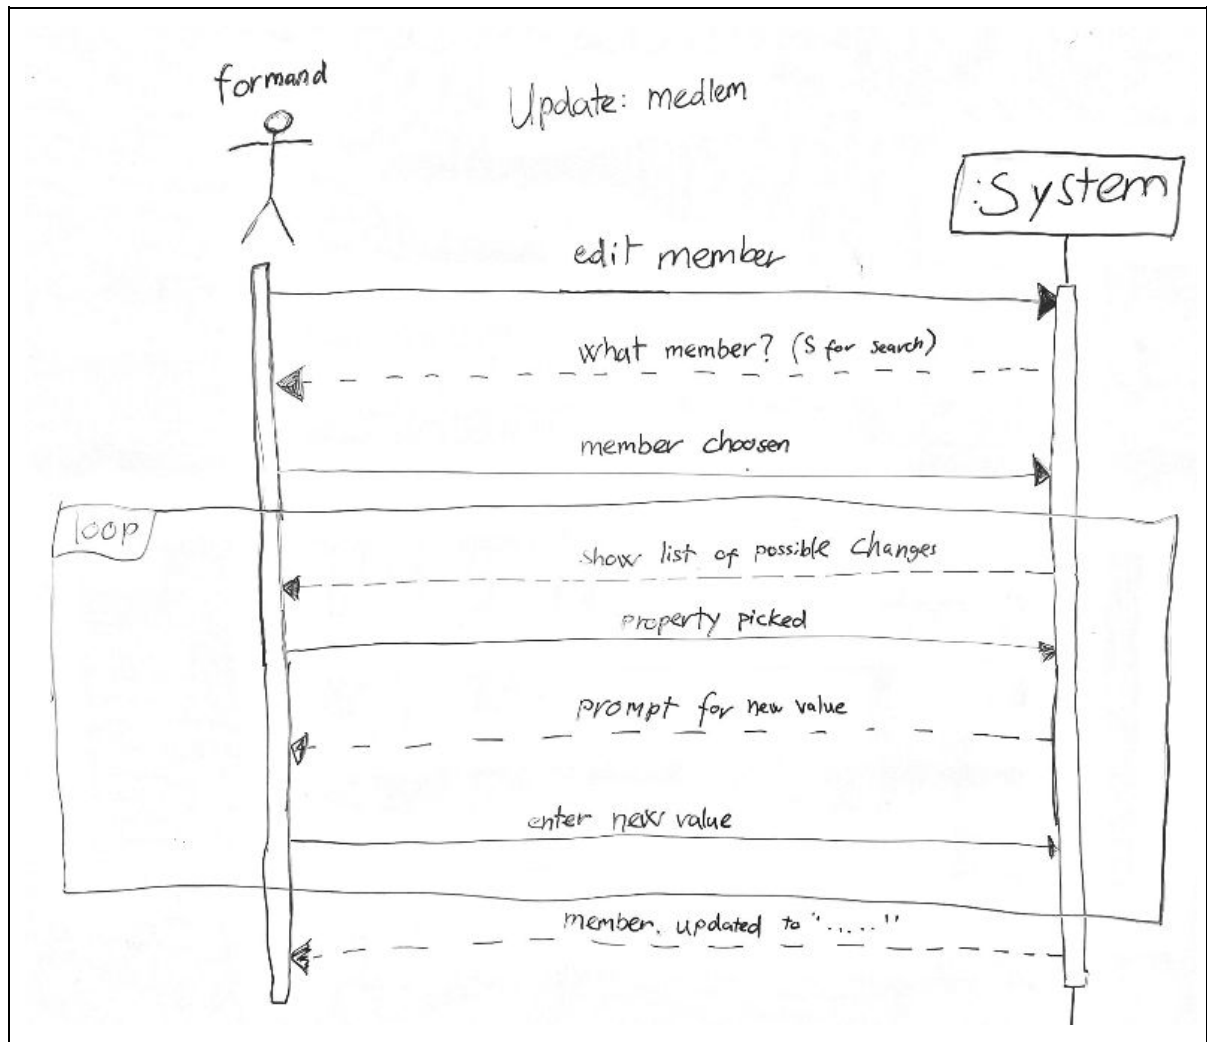 formand
Update: medlem
:System
edit member
What member? (S for search)
member choosen
loop
show list of possible changes
property picked
prompt for new value
enter new value
member updated to "....."